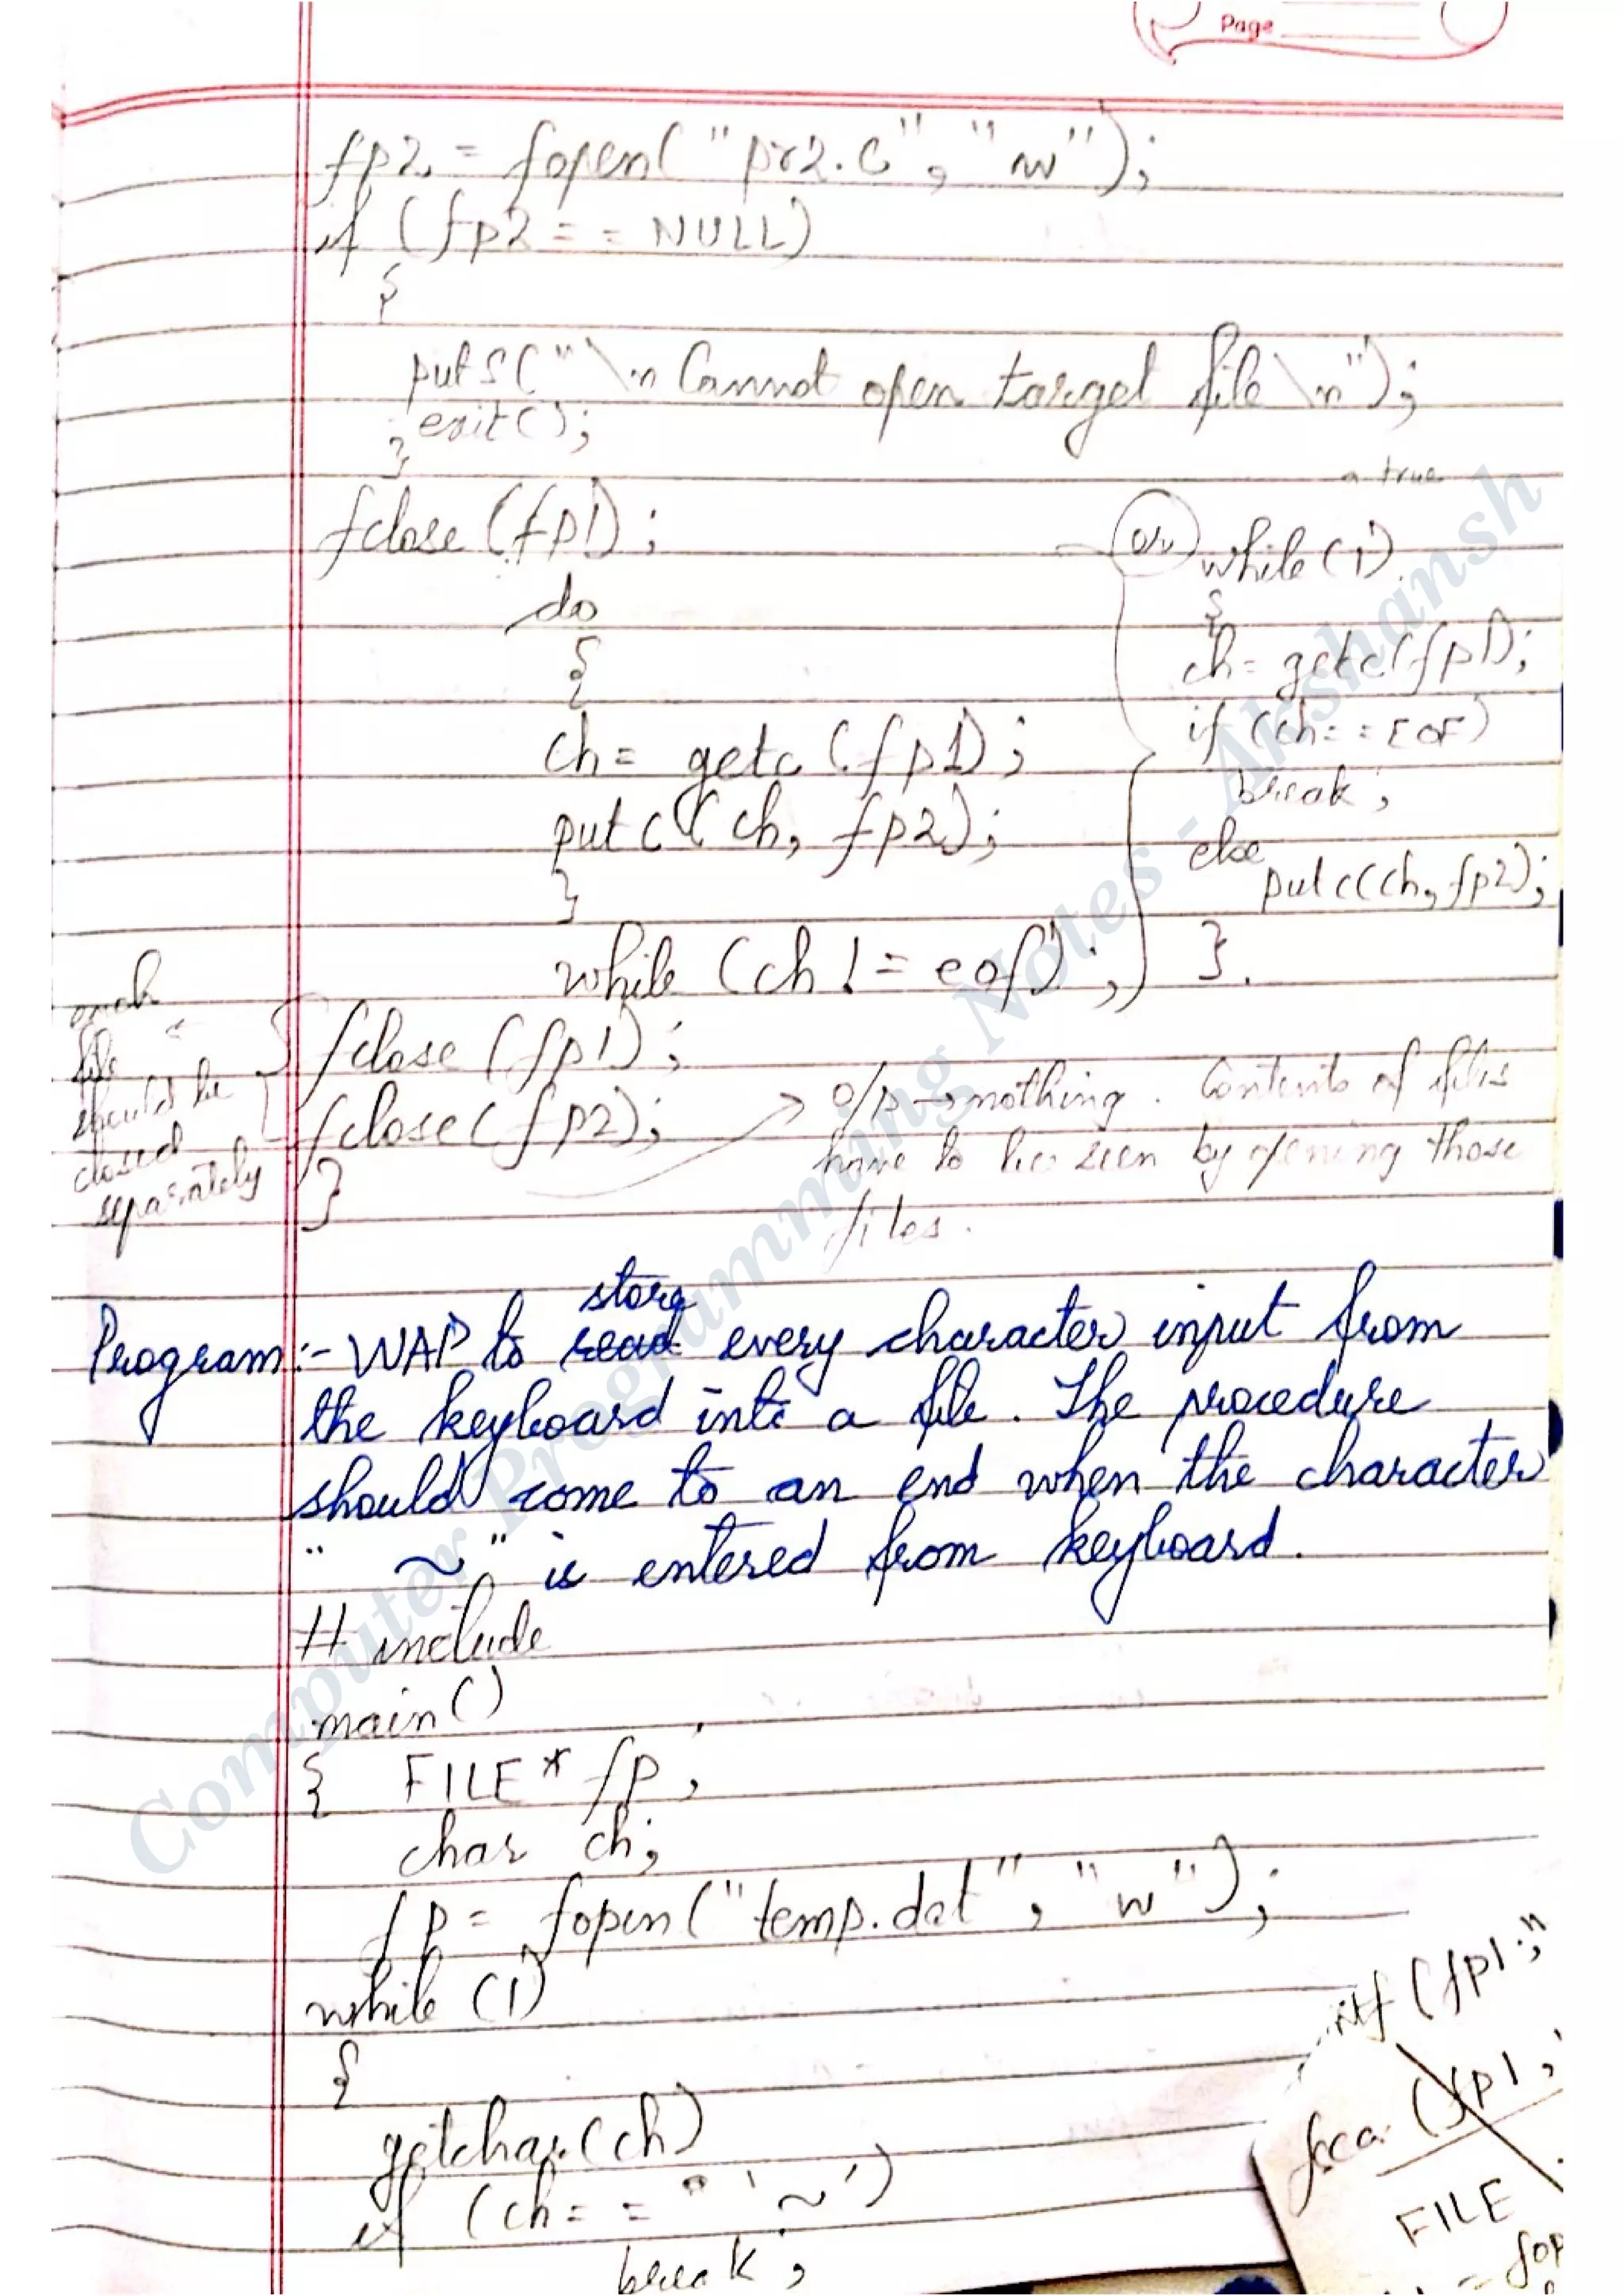 Page
fp2 = fopen("pr2.c", "w");
if (fp2 == NULL)
{
puts("\n Cannot open target file \n");
exit();
}
fclose (fp1);
do
{
ch = getc (fp1);
putc (ch, fp2);
}
while (ch != eof);
or
true
while (1)
{
ch = getc(fp1);
if (ch == EOF)
break;
else
putc(ch, fp2);
}.
each
file
should be
closed
separately
fclose (fp1);
fclose (fp2);
}
→ o/p → nothing. Contents of files
have to be seen by opening those
files.
store
Program :- WAP to read every character input from
the keyboard into a file. The procedure
should come to an end when the character
" ~ " is entered from keyboard.
# include
main()
{ FILE * fp;
char ch;
fp = fopen("temp.dat", "w");
while (1)
{
getchar(ch)
if (ch == '~')
break;
(fp1;"
(fp1,
FILE
= fop
Computer Programming Notes - Akshansh